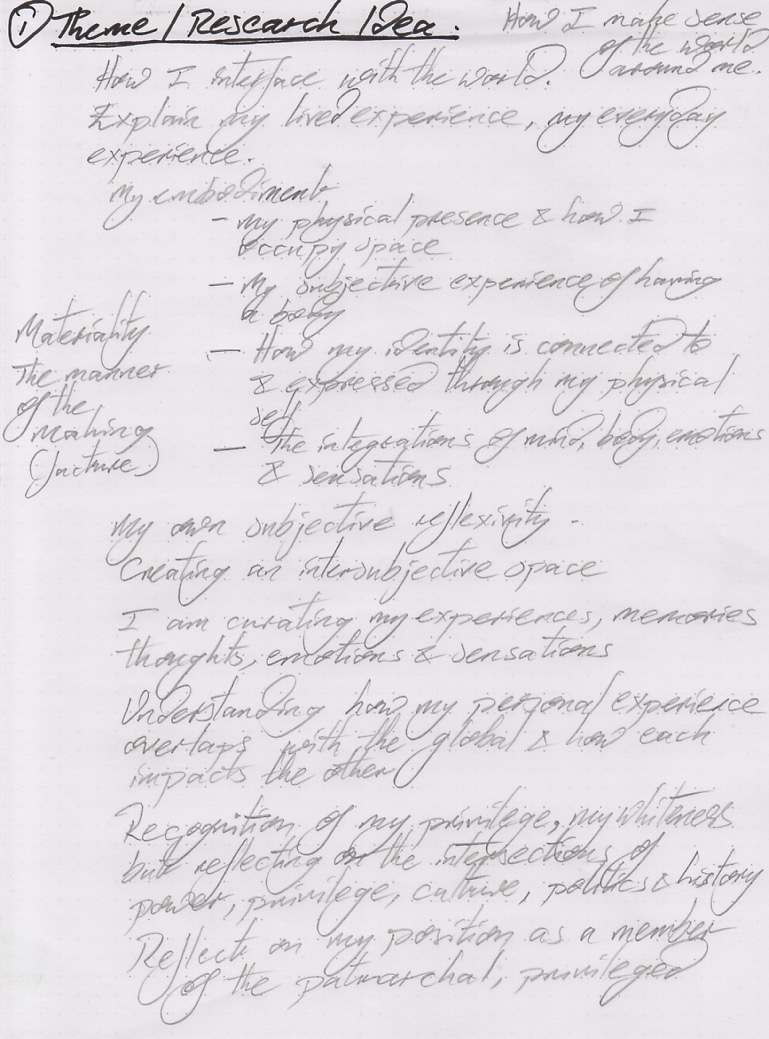 ① Theme / Research Idea.
How I make sense
of the world
around me.
How I interface with the world.
Explain my lived experience, my everyday
experience.
My embodiment
- my physical presence & how I
occupy space
- My subjective experience of having
a body
- How my identity is connected to
& expressed through my physical
self
- The integrations of mind, body, emotions
& sensations
Materiality
The manner
of the
making
(facture)
My own subjective reflexivity -
Creating an intersubjective space
I am curating my experiences, memories
thoughts, emotions & sensations
Understanding how my personal experience
overlaps with the global & how each
impacts the other
Recognition of my privilege, my whiteness
but reflecting on the intersections of
power, privilege, culture, politics & history
Reflect on my position as a member
of the patriarchal, privileged